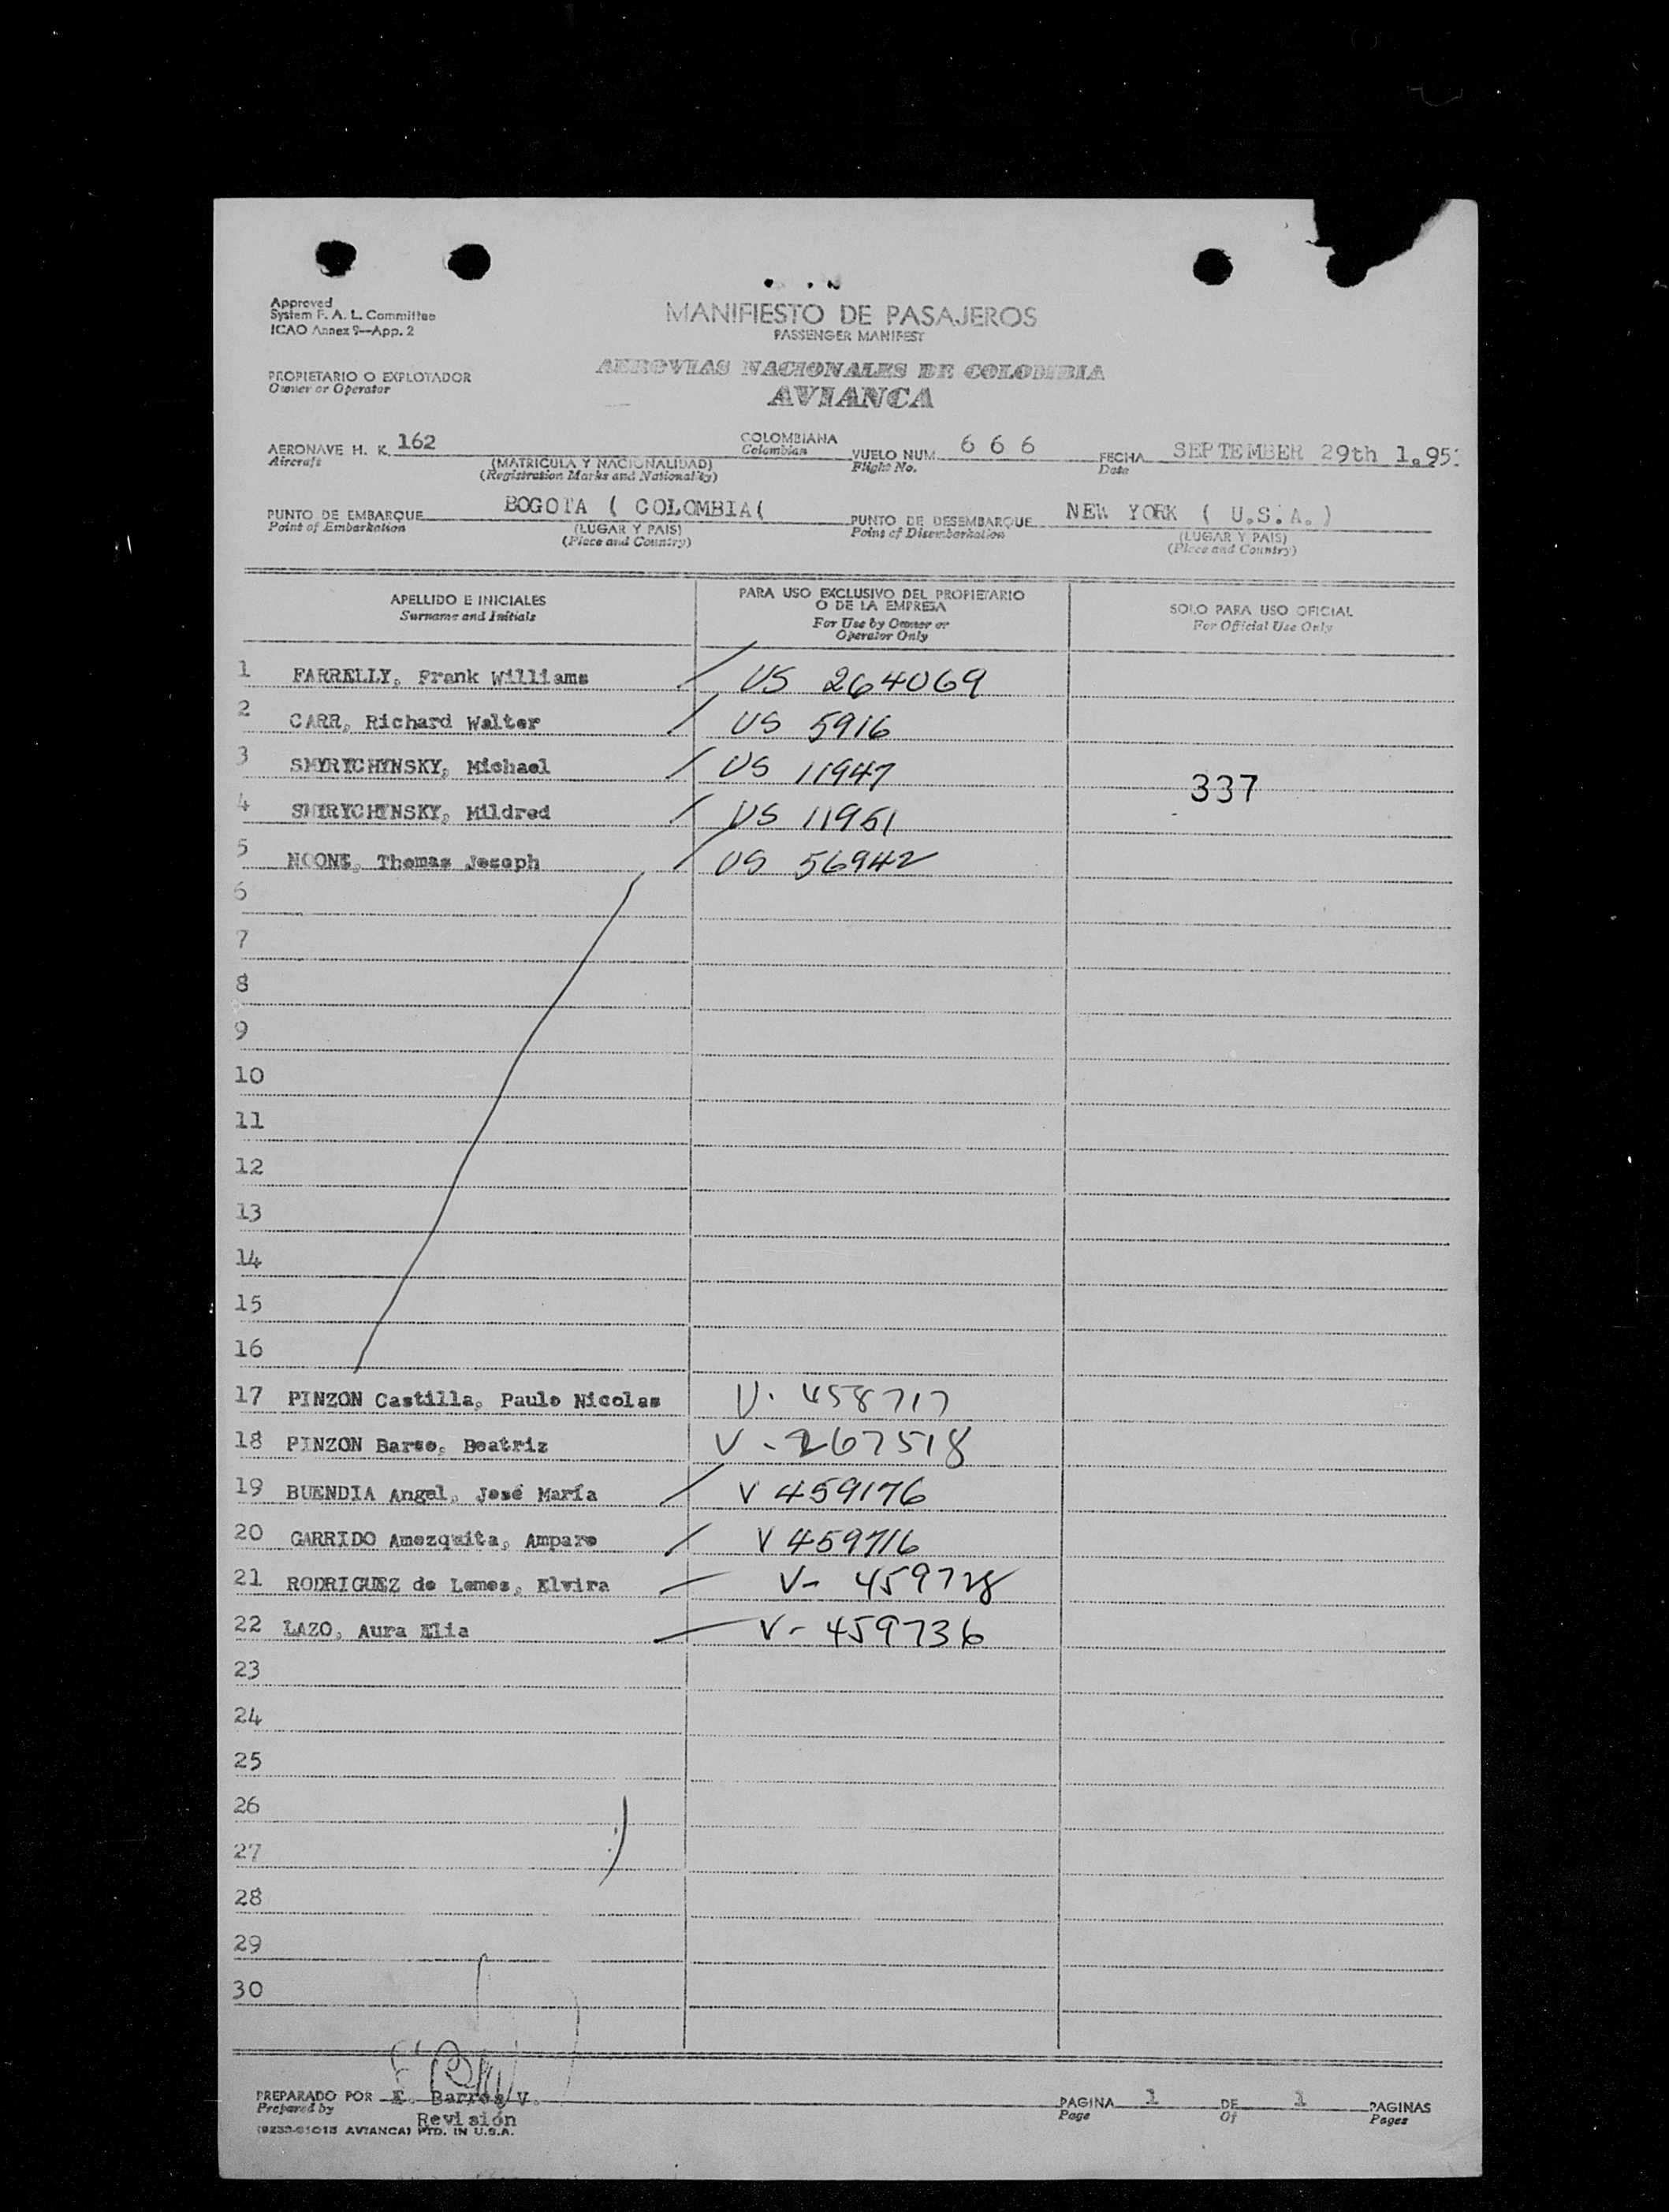 Approved
System F. A. L. Committee
ICAO Annex 9--App. 2
MANIFIESTO DE PASAJEROS
PASSENGER MANIFEST
PROPIETARIO O EXPLOTADOR
Owner or Operator
AEROVIAS NACIONALES DE COLOMBIA
AVIANCA
AERONAVE H. K. 162 COLOMBIANA VUELO NUM. 6 6 6 FECHA SEPTEMBER 29th 1.95
Aircraft (MATRICULA Y NACIONALIDAD) Colombian Flight No. Date
(Registration Marks and Nationality)
PUNTO DE EMBARQUE BOGOTA ( COLOMBIA( PUNTO DE DESEMBARQUE NEW YORK ( U.S.A.)
Point of Embarkation (LUGAR Y PAIS) Point of Disembarkation (LUGAR Y PAIS)
(Place and Country) (Place and Country)
APELLIDO E INICIALES PARA USO EXCLUSIVO DEL PROPIETARIO SOLO PARA USO OFICIAL
Surname and Initials O DE LA EMPRESA For Official Use Only
For Use by Owner or
Operator Only
1 FARRELLY, Frank Williams US 264069
2 CARR, Richard Walter US 5916
3 SMYRYCHYNSKY, Michael US 11947
337
4 SMIRYCHYNSKY, Mildred US 11951
5 NOONE, Thomas Joseph US 56942
6
7
8
9
10
11
12
13
14
15
16
17 PINZON Castilla, Paulo Nicolas V. 458717
18 PINZON Barso, Beatriz V - 267518
19 BUENDIA Angel, José María V 459176
20 GARRIDO Amezquita, Amparo V 459716
21 RODRIGUEZ de Lemos, Elvira V- 459728
22 LAZO, Aura Elia V- 459736
23
24
25
26
27
28
29
30
PREPARADO POR E. Barros V. PAGINA 1 DE 1 PAGINAS
Prepared by Revisión Page Of Pages
AVIANCA) PTD. IN U.S.A.